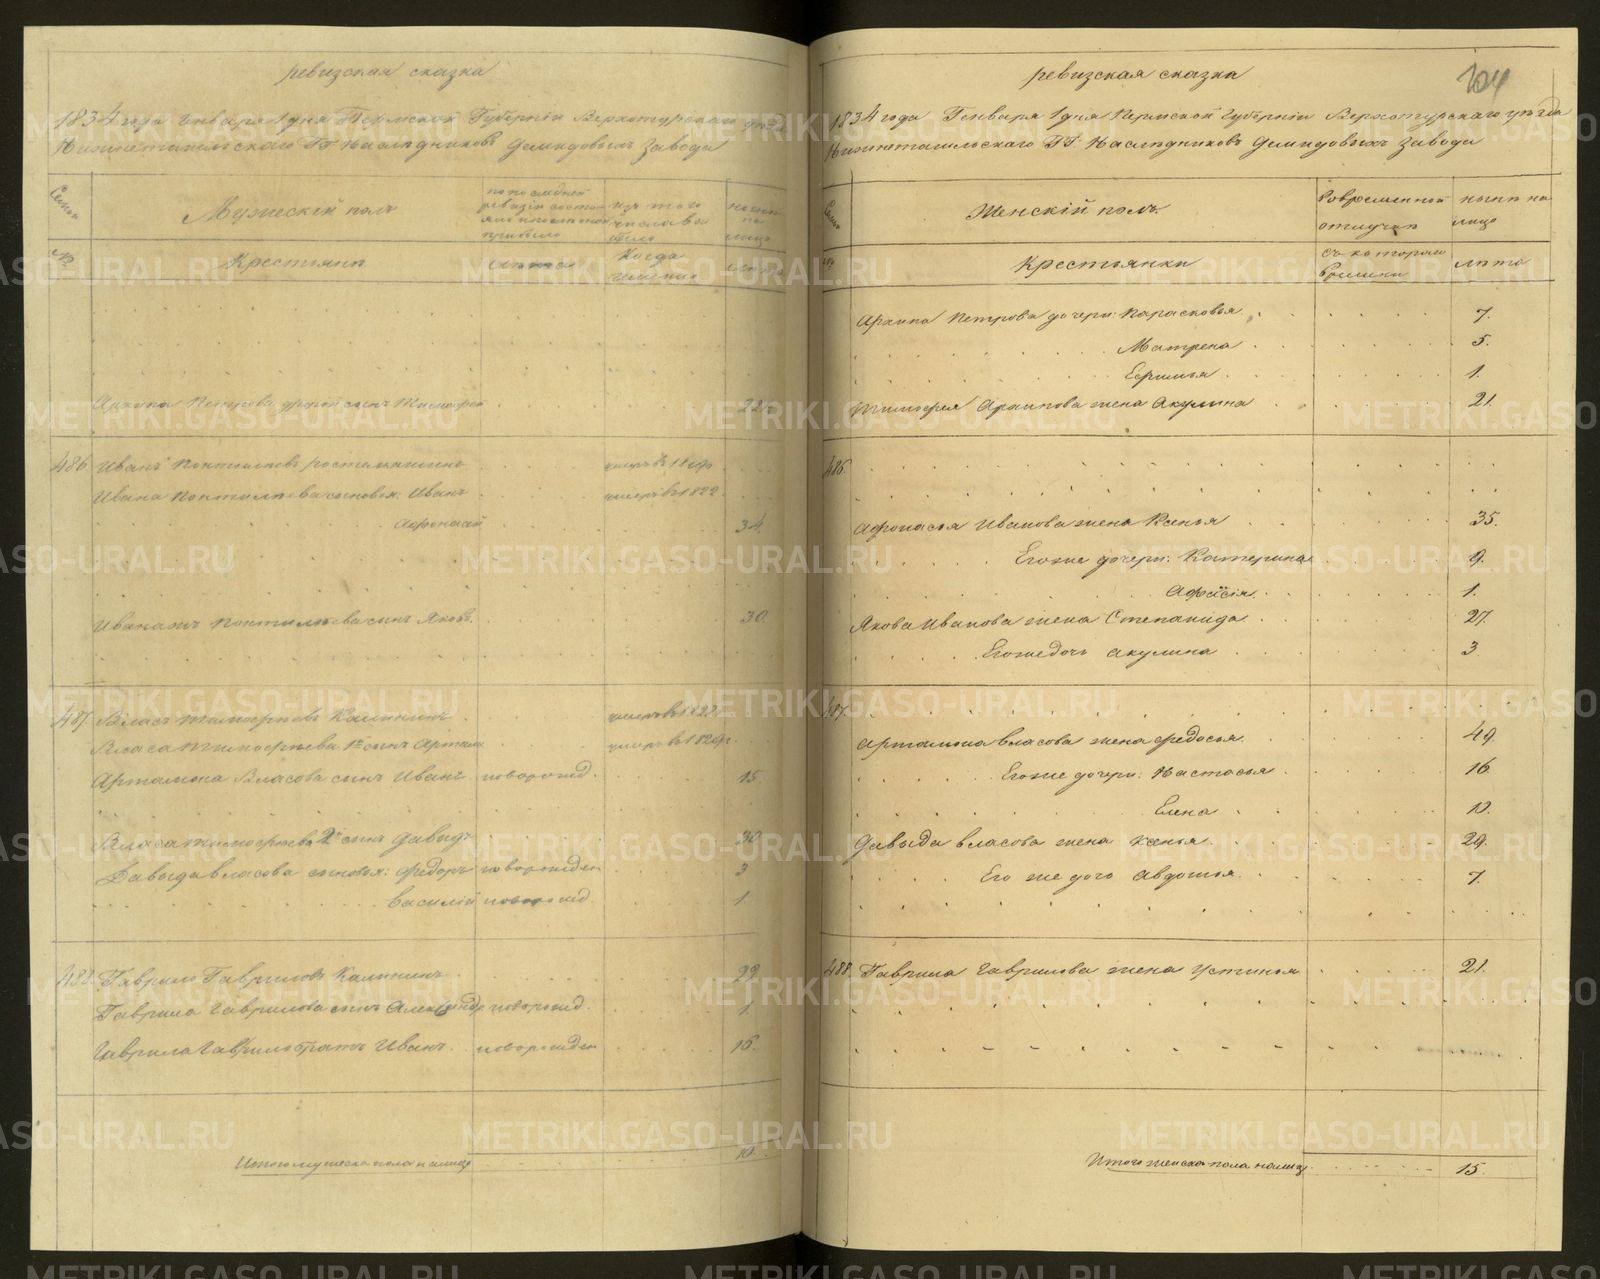 ревизская сказка
1834 года Генваря 1 дня Пермской Губернiи Верхотурскаго уѣзда
Нижнетагильскаго ГГ. Наслѣдниковъ Демидовыхъ завода
Семьи
Мужескiй полъ
по последней ревизiи состояло и после того прибыло
изъ того числа выбыло
нынѣ на лицо
№
Крестьяне
лѣта
Когда именно
лѣта
Архипа Петрова другой сынъ Тимофей 22
486 Иванъ
умеръ в
Ивана сыновья: Иванъ умеръ въ 1822
Афонасей 34
Ивана жъ сынъ Яковъ. 30.
487. Власъ Тимофѣевъ Калининъ умеръ въ 1822
Власа Тимофѣева 1й сынъ Артамонъ умеръ въ
Артамона Власова сынъ Иванъ новорожд. 15.
Власа Тимофѣева 2й сынъ Давыдъ 30
Давыда Власова сыновья: Федоръ новорожден 3
Василiй новорожд. 1
488. Гаврило Гавриловъ Калининъ 22
Гаврила Гаврилова сынъ Александр новорожд. 1.
Гаврила Гаврилова братъ Иванъ. новорожден 16.
Итого мужеска пола на лицо 10.
104
ревизская сказка
1834 года Генваря 1 дня Пермской Губернiи Верхотурскаго уѣзда
Нижнетагильскаго ГГ. Наслѣдниковъ Демидовыхъ завода
Семьи
Женскiй полъ.
Во временной отлучкѣ
нынѣ на лицо
№
Крестьянки
съ котораго времени
лѣта
Архипа Петрова дочери: Парасковья. 7.
Матрена 5.
Ефимья. 1.
Тимофея Архипова жена Акулина 21.
486.
Афонасья Иванова жена Ксенья 35.
Его же дочери: Катерина 9.
1.
Якова Иванова жена Степанида 27.
Его же дочь Акулина 3
487.
Артамона Власова жена Федосья. 49.
Его же дочери: Настасья 16
Елена 10.
Давыда Власова жена Ксенья. 29.
Его же дочь Авдотья. 7.
488. Гаврила Гаврилова жена Устинья 21.
Итого женска пола налицо 15.
METRIKI.GASO-URAL.RU